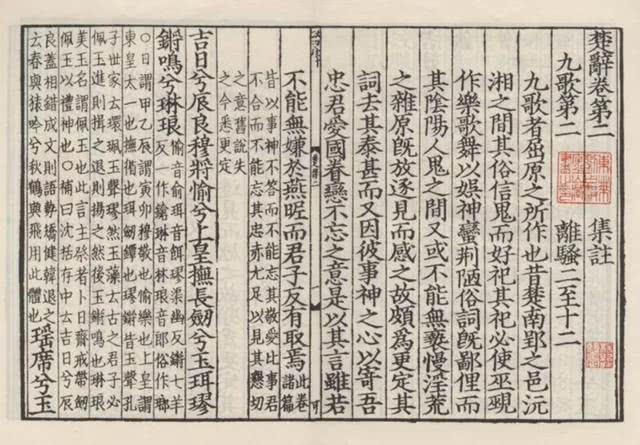 楚辭卷第二　集註
九歌第二　離騷二至十二
九歌者屈原之所作也昔楚南郢之邑沅
湘之間其俗信鬼而好祀其祀必使巫覡
作樂歌舞以娱神蠻荆陋俗詞旣鄙俚而
其陰陽人鬼之間又或不能無褻慢淫荒
之雜原旣放逐見而感之故頗爲更定其
詞去其泰甚而又因彼事神之心以寄吾
忠君愛國眷戀不忘之意是以其言雖若
不能無嫌於燕昵而君子反有取焉此卷諸篇
皆以事神不答而不能忘其敬愛比事君
不合而不能忘其忠赤尤足以見其懇切
之意舊說失
之今悉更定
吉日兮辰良穆將愉兮上皇撫長劒兮玉珥璆
鏘鳴兮琳琅愉音俞珥音餌璆渠幽反鏘七羊
反一作鎗琳音林琅音郎俗作瑯
○日謂甲乙辰謂寅卯穆敬也愉樂也上皇謂
東皇太一也撫循也珥劒鐔也璆鏘皆玉聲孔
子世家云環珮玉聲璆然玉藻云古之君子必
佩玉進則揖之退則揚之然後玉鏘鳴也琳琅
美玉名謂佩玉也此言主祭者卜日齋戒帶劒
佩玉以禮神也○補曰沈括存中云吉日兮辰
良蓋相錯成文則語勢矯健韓退之
云春與猿吟兮秋鶴與飛用此體也瑶席兮玉